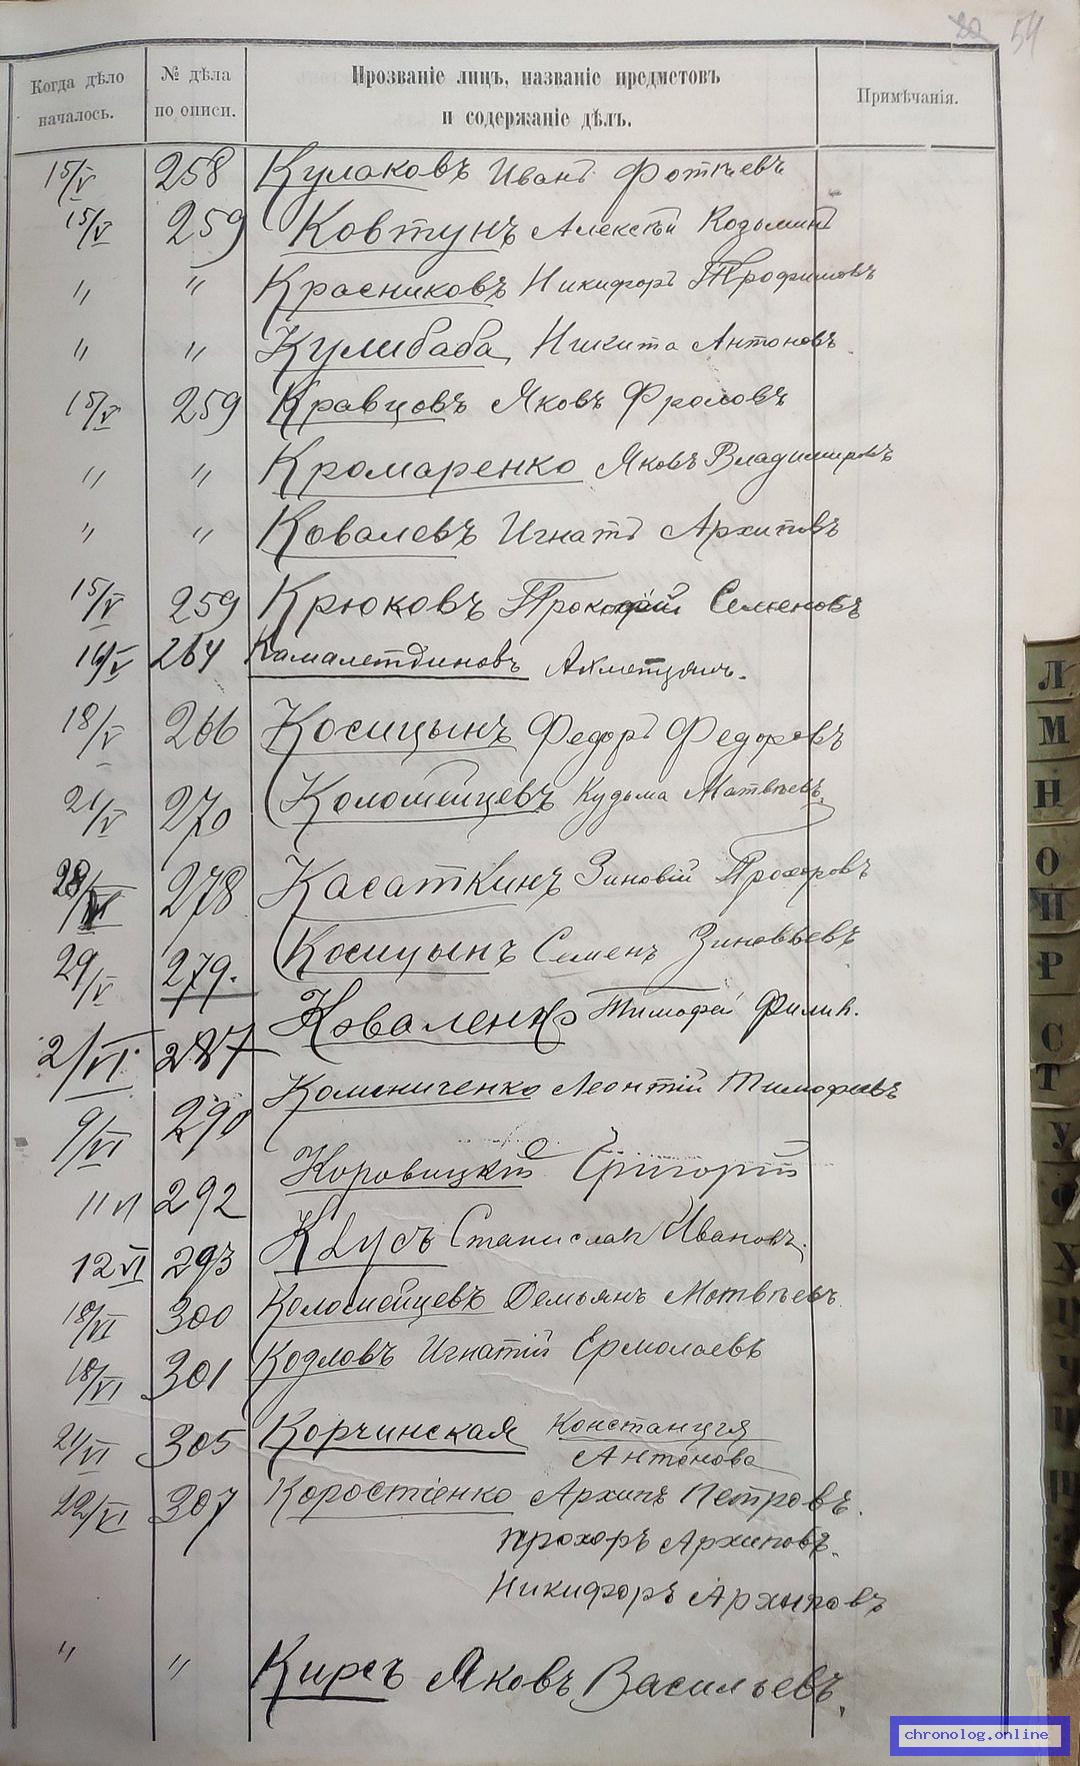 54
Когда дѣло началось.
№ дѣла по описи.
Прозваніе лицъ, названіе предметовъ и содержаніе дѣлъ.
Примѣчанія.
15/V 258 Кулаковъ Иванъ Фотіевъ
15/V 259 Ковтунъ Алексѣй Козьминъ
" " Красниковъ Никифоръ Трофимовъ
" " Кулибаба Никита Антоновъ
15/V 259 Кравцовъ Яковъ Фроловъ
" " Кромаренко Яковъ Владимировъ
" " Ковалевъ Игнатъ Архиповъ
15/V 259 Крюковъ Прокофій Семеновъ
16/V 264 Камалетдиновъ Ахметцянъ.
18/V 266 Косицынъ Федоръ Федоровъ
21/V 270 Коломейцевъ Кудьма Матвѣевъ.
28/ 278 Касаткинъ Зиновій Прохоровъ
29/V 279. Косицынъ Семенъ Зиновьевъ
2/VI 287 Коваленко Тимофей Филип.
9/VI 290 Коленченко Леонтій Тимофеевъ
11 VI 292 Коровицкій Григорій
12 VI 293 Клусъ Станислав Ивановъ.
18/VI 300 Коломейцевъ Демьянъ Матвѣевъ.
18/VI 301 Кодловъ Игнатій Ермолаевъ
21/VI 305 Корчинская Констанція
Антонова
22/VI 307 Коростіенко Архипъ Петровъ.
Прохоръ Архиповъ.
Никифоръ Архиповъ
" " Кирсъ Яковъ Васильевъ.
Л
М
Н
О
П
Р
С
Т
У
Х
chronolog.online